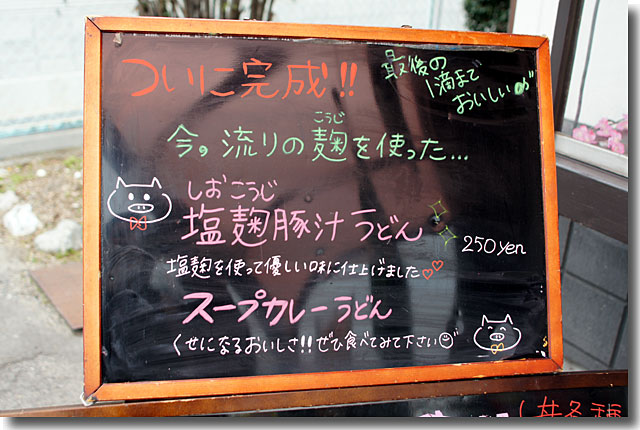 ついに完成!!
最後の
1滴まで
おいしいの"
こうじ
今。流りの麹を使った...
しおこうじ
塩麹豚汁うどん
250yen
塩麹を使って優しい味に仕上げました♡♡
スープカレーうどん
くせになるおいしさ!!ぜひ食べてみて下さい☺"
丼各種